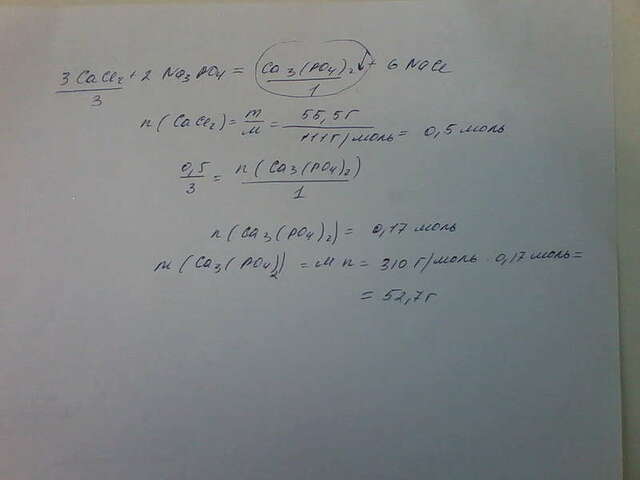 3 CaCl₂ + 2 Na₃PO₄ = Ca₃(PO₄)₂↓ + 6 NaCl
3 1
n(CaCl₂) = m/M = 55,5г / 111г/моль = 0,5 моль
0,5/3 = n(Ca₃(PO₄)₂)/1
n(Ca₃(PO₄)₂) = 0,17 моль
m(Ca₃(PO₄)₂) = M n = 310 г/моль · 0,17 моль =
= 52,7г